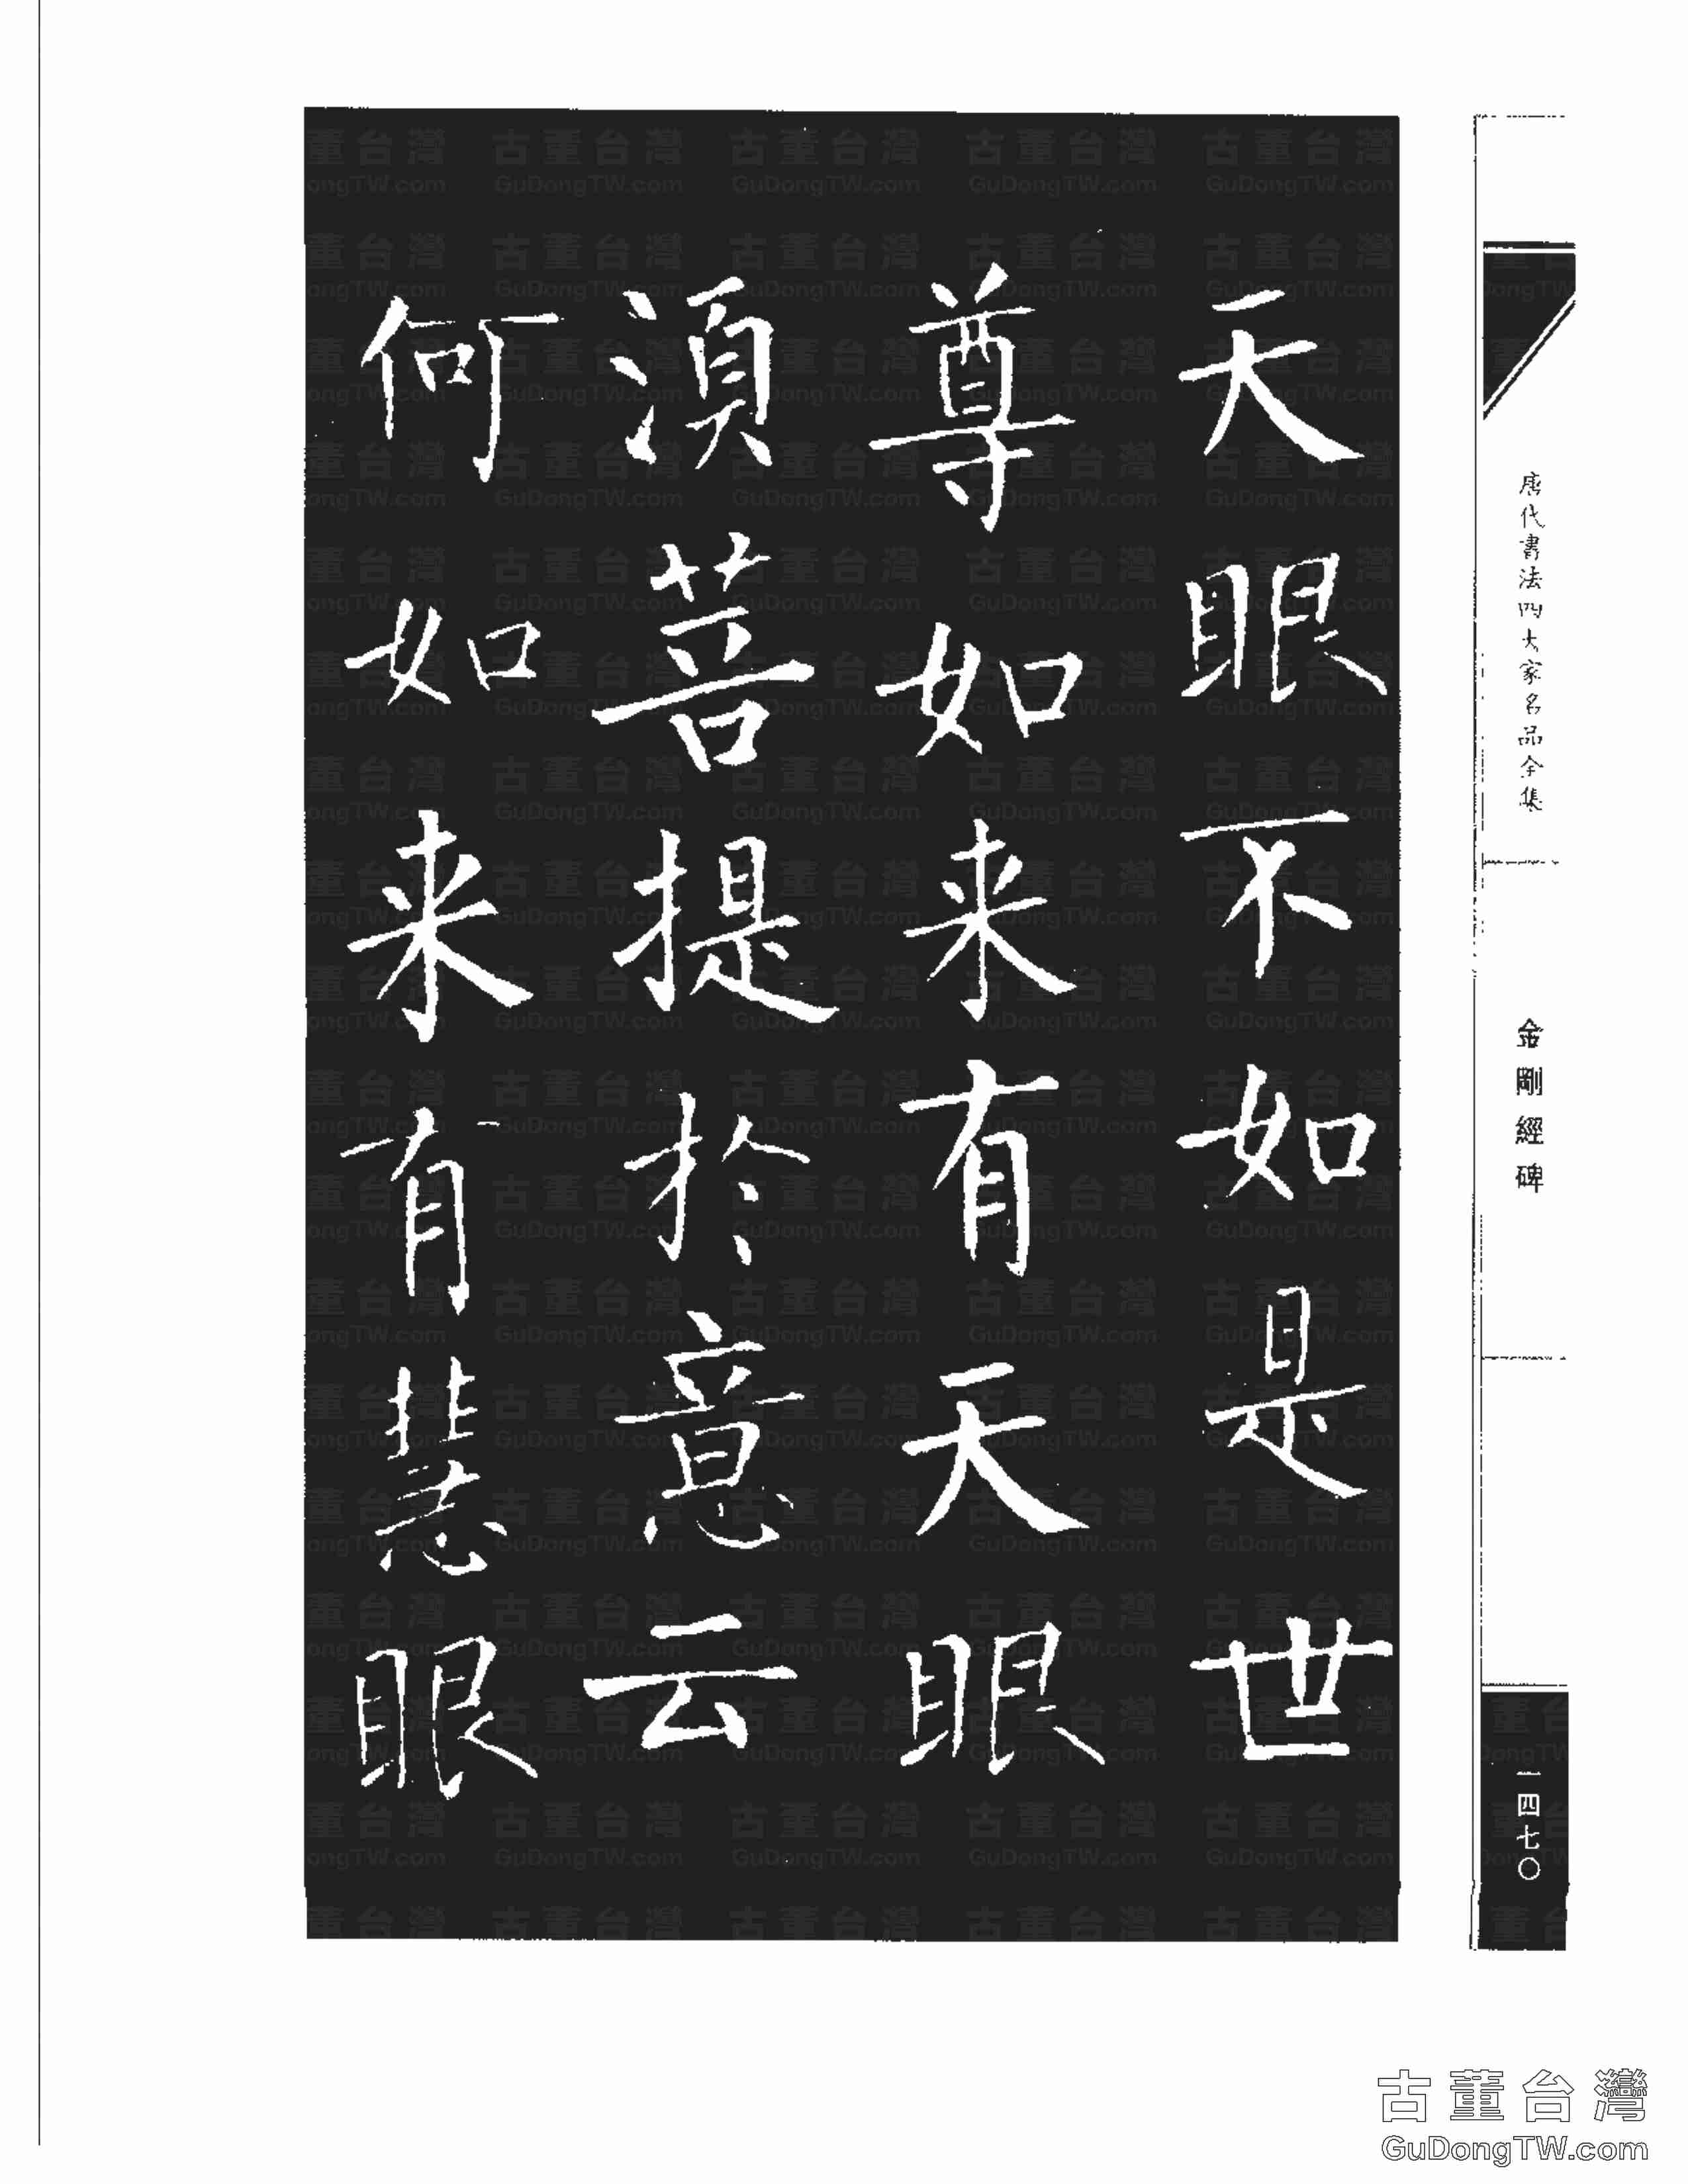 天眼不如是世
尊如来有天眼
湏菩提於意云
何如来有慧眼
唐代書法四大家名品全集
金剛經碑
一四七〇
古董台灣
GuDongTW.com